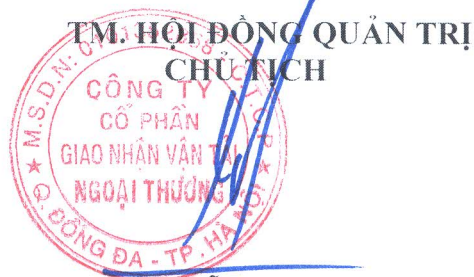 TM. HỘI ĐỒNG QUẢN TRỊ
CHỦ TỊCH
M.S.D.N:
C.T.C.P
CÔNG TY
CỔ PHẦN
GIAO NHẬN VẬN TẢI
NGOẠI THƯƠNG
Q. ĐỐNG ĐA - TP. HÀ NỘI